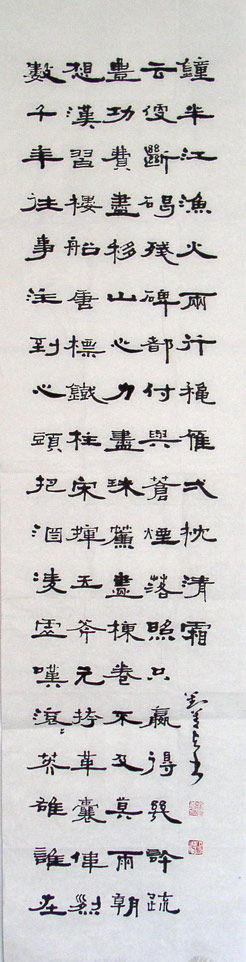 數千年往事注到心頭把酒凌虛嘆滾〻英雄誰在
想漢習樓船唐標鐵柱宋揮玉斧元跨革囊偉烈
豊功費盡移山心力盡珠簾畫棟卷不及莫雨朝
云便斷碣殘碑都付與蒼煙落照只贏得幾許疏
鐘半江漁火兩行穐雁弌枕清霜